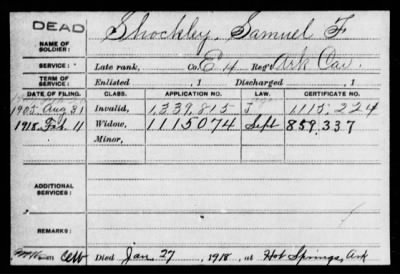 DEAD
NAME OF SOLDIER: Shockley, Samuel F.
SERVICE: Late rank, Co. E 4 Reg't Ark Cav.
TERM OF SERVICE: Enlisted , 1 Discharged , 1
DATE OF FILING. CLASS. APPLICATION NO. LAW. CERTIFICATE NO.
1905 Aug 31 Invalid, 1,339,815 1,115,224
1918 Feb. 11 Widow, 1115074 Sept 859,337
Minor,
ADDITIONAL SERVICES:
REMARKS:
Died Jan. 27, 1918, at Hot Springs, Ark